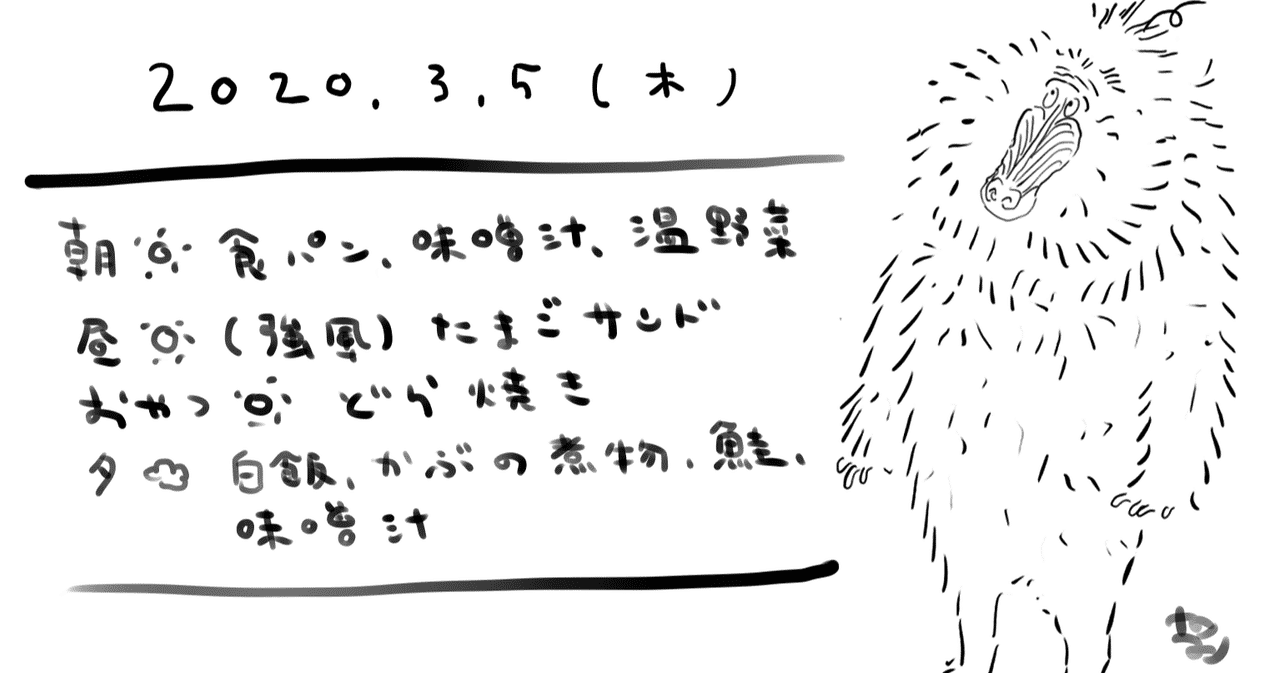 2020.3.5(木)
朝 食パン、味噌汁、温野菜
昼 (強風)たまごサンド
おやつ どら焼き
夕 白飯、かぶの煮物、鮭、
味噌汁